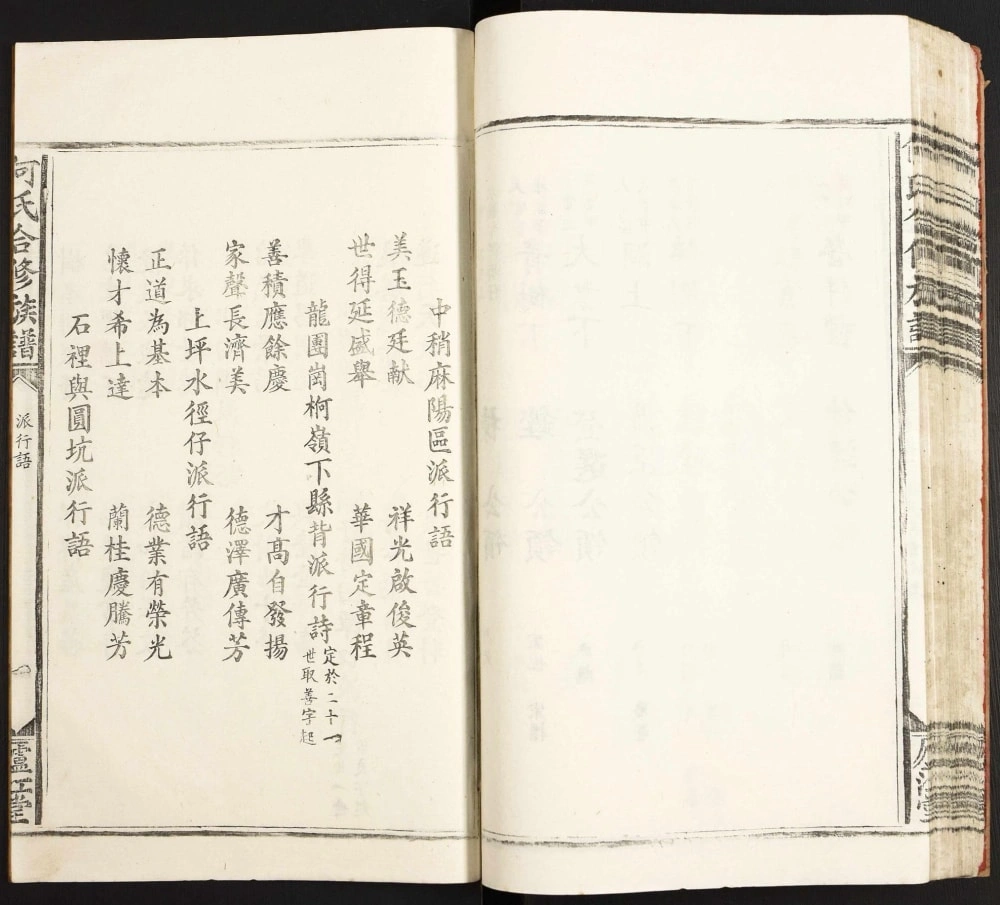 中稍麻陽區派行語
美玉德廷献　祥光啟俊英
世得延盛舉　華國定章程
龍團崗桐嶺下縣背派行詩 定於二十一世取善字起
善積應餘慶　才高自發揚
家聲長濟美　德澤廣傳芳
上坪水徑仔派行語
正道為基本　德業有榮光
懷才希上達　蘭桂慶騰芳
石裡與圓坑派行語
何氏合修族譜
派行語
一
廬江堂